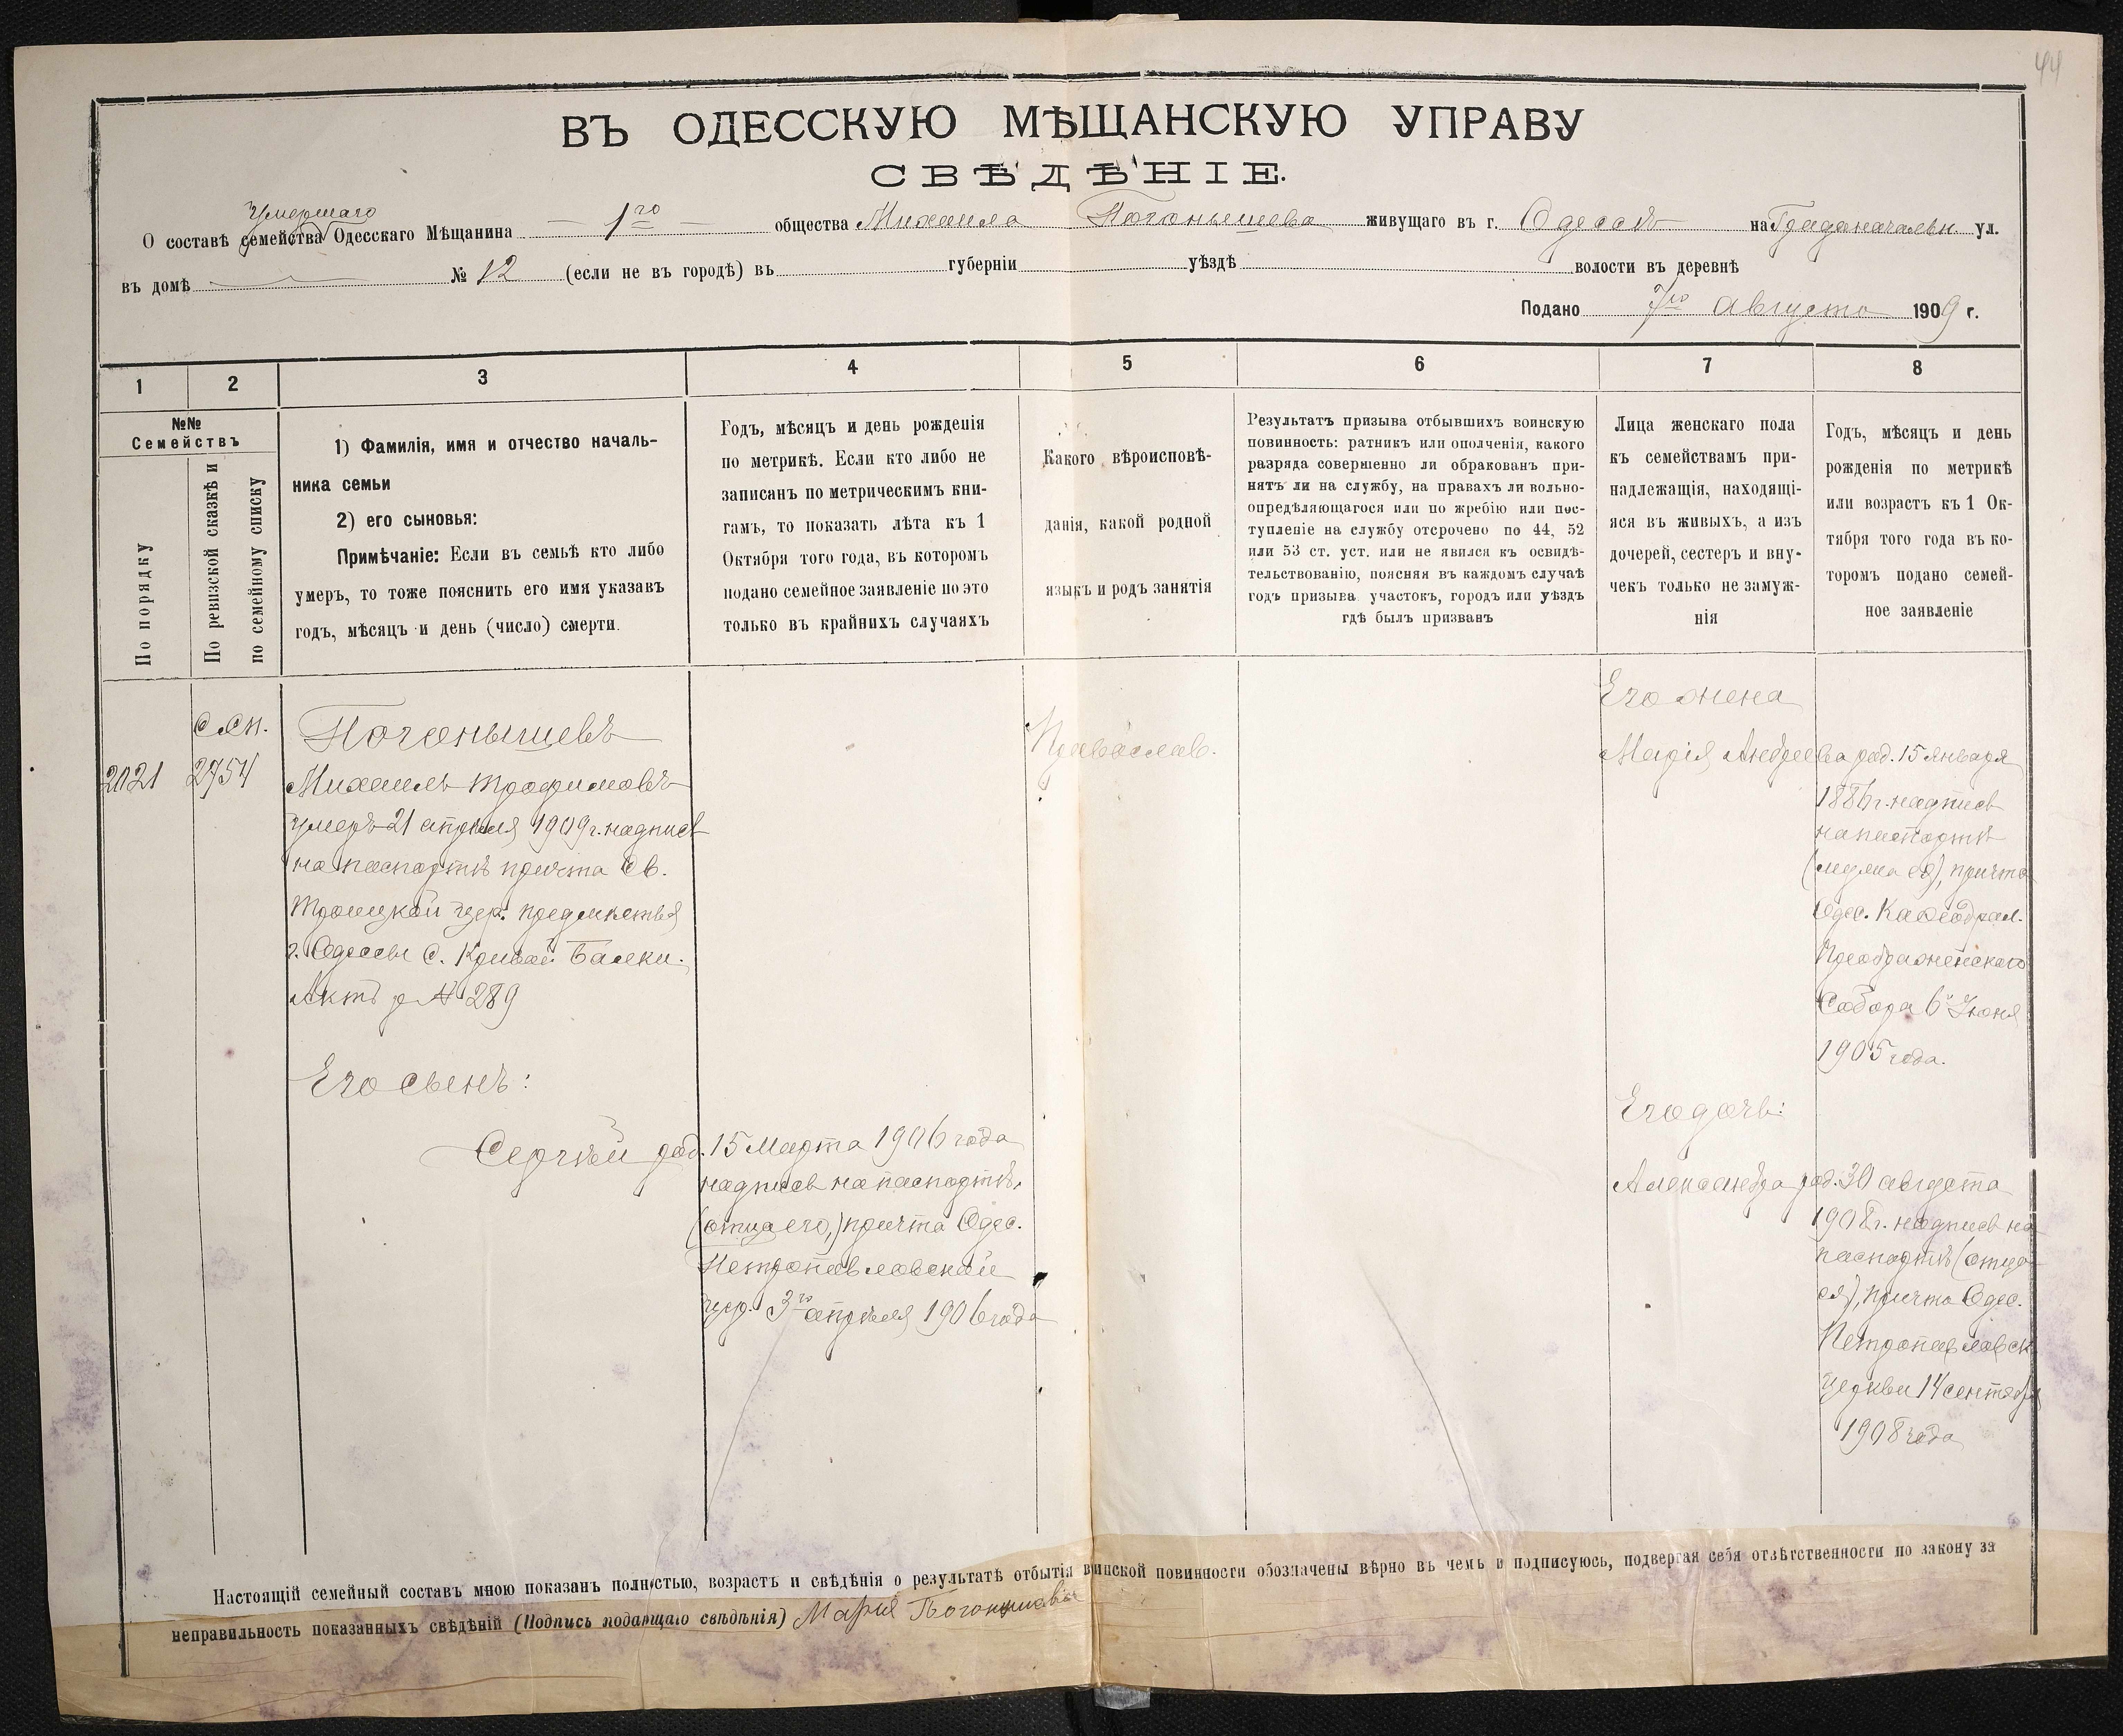 44
ВЪ ОДЕССКУЮ МѢЩАНСКУЮ УПРАВУ
СВѢДѢНІЕ.
Умершаго
О составѣ семейства Одесскаго Мѣщанина 1го общества Михаила Погонышева живущаго въ г. Одессѣ на Градоначальн. ул.
въ домѣ № 12 (если не въ городѣ) въ губерніи уѣздѣ волости въ деревнѣ
Подано 7го августа 1909 г.
1 2 3 4 5 6 7 8
№№
Семействъ
По порядку
По ревизской сказкѣ и
по семейному списку
1) Фамилія, имя и отчество началь-
ника семьи
2) его сыновья:
Примѣчаніе: Если въ семьѣ кто либо
умеръ, то тоже пояснить его имя указавъ
годъ, мѣсяцъ и день (число) смерти.
Годъ, мѣсяцъ и день рожденія
по метрикѣ. Если кто либо не
записанъ по метрическимъ кни-
гамъ, то показать лѣта къ 1
Октября того года, въ которомъ
подано семейное заявленіе но это
только въ крайнихъ случаяхъ
Какого вѣроисповѣ-
данія, какой родной
языкъ и родъ занятія
Результатъ призыва отбывшихъ воинскую
повинность: ратникъ или ополченія, какого
разряда совершенно ли обракованъ при-
нятъ ли на службу, на правахъ ли вольно-
опредѣляющагося или по жребію или пос-
тупленіе на службу отсрочено по 44, 52
или 53 ст. уст. или не явился къ освидѣ-
тельствованію, поясняя въ каждомъ случаѣ
годъ призыва участокъ, городъ или уѣздъ
гдѣ былъ призванъ
Лица женскаго пола
къ семействамъ при-
надлежащія, находящі-
яся въ живыхъ, а изъ
дочерей, сестеръ и вну-
чекъ только не замуж-
нія
Годъ, мѣсяцъ и день
рожденія по метрикѣ
или возрастъ къ 1 Ок-
тября того года въ ко-
торомъ подано семей-
ное заявленіе
2021
2754
Погонышевъ
Михаилъ Трофимовъ
умеръ 21 апрѣля 1909 г. надпись
на паспортѣ причта Св.
Троицкой цер. предмѣстья
г. Одессы С. Кривой Балки.
Актъ № 289
Его сынъ:
Сергѣй род. 15 Марта 1906 года
надпись на паспортѣ,
(отца его,) причта Одес.
Петропавловской
цер. 3го апрѣля 1906 года
Православ.
Его жена
Марія Андреева род. 15 января
1886 г. надпись
на паспортѣ
(мужа ея), причта
Одес. Каѳедрал.
Преображенскаго
Собора 6 Іюня
1905 года.
Его дочь:
Александра род. 30 августа
1908 г. надпись на
паспортѣ (отца
ея), причта Одес.
Петропавловск
церкви 14 сентября
1908 года
Настоящій семейный составъ мною показанъ полностью, возрастъ и свѣдѣнія о результатѣ отбытія воинской повинности обозначены вѣрно въ чемъ и подписуюсь, подвергая себя отвѣтственности по закону за
неправильность показанныхъ свѣдѣній (Подпись подающаго свѣдѣнія) Марія Погонишова